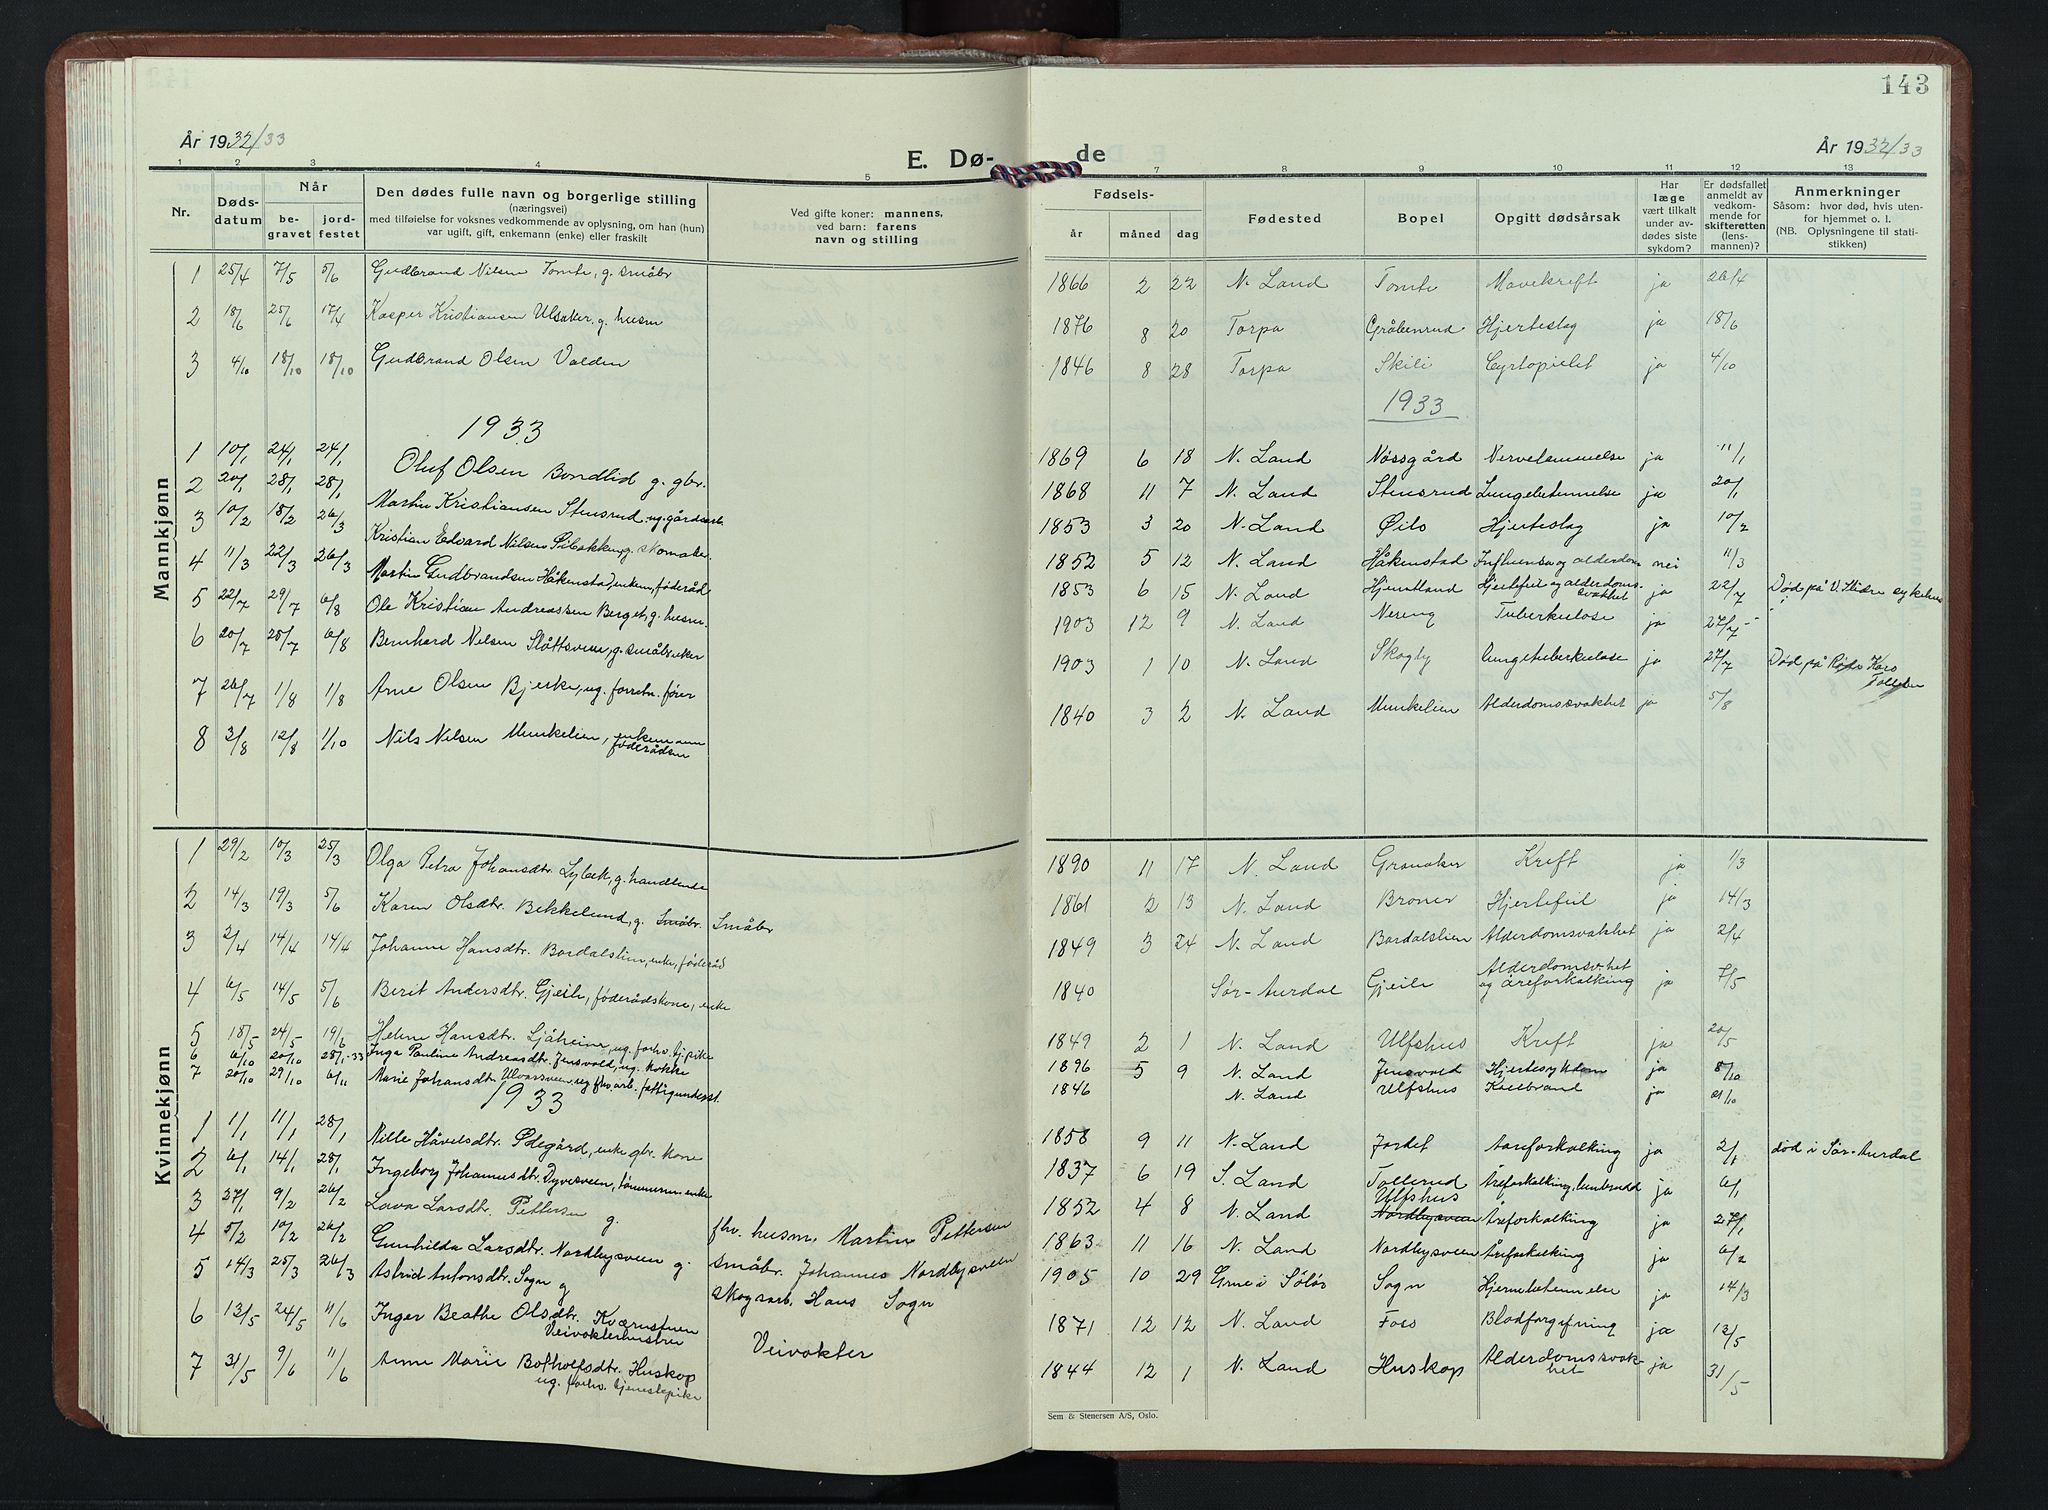 143
År 1932/33
E. Dø- de
År 1932/33
1 2 3 4 5 7 8 9 10 11 12 13
Nr. Døds-datum Når be-gravet jord-festet Den dødes fulle navn og borgerlige stilling (næringsvei) med tilføielse for voksnes vedkommende av oplysning, om han (hun) var ugift, gift, enkemann (enke) eller fraskilt Ved gifte koner: mannens, ved barn: farens navn og stilling Fødsels- år måned dag Fødested Bopel Opgitt dødsårsak Har læge vært tilkalt under av-dødes siste sykdom? Er dødsfallet anmeldt av vedkom-mende for skifteretten (lens-mannen)? Anmerkninger Såsom: hvor død, hvis uten-for hjemmet o. l. (NB. Oplysningene til stati-stikken)
Mannkjønn
1 25/4 7/5 5/6 Gudbrand Nilsen Tomte, g. småbr 1866 2 22 N. Land Tomte Mavekreft ja 26/4
2 18/6 25/6 17/4 Kasper Kristiansen Ulsaker, g. husm 1876 8 20 Torpa Gråbenrud Hjerteslag ja 18/6
3 4/10 18/10 18/10 Gudbrand Olsen Volden 1846 8 28 Torpa Skili ja 4/10
1933 1933
1 10/1 24/1 24/1 Oluf Olsen Bondlid g. gbr. 1869 6 18 N. Land Nøssgård Nervelammelse ja 11/1
2 20/1 28/1 28/1 Martin Kristiansen Stensrud, ug. gårdsarb. 1868 11 7 N. Land Stensrud Lungebetennelse ja 20/1
3 10/2 18/2 26/3 Kristian Edvard Nilsen g. skomaker. 1853 3 20 N. Land Øilo Hjerteslag ja 10/2
4 11/3 22/3 26/3 Martin Gudbrandsen Håkenstad, enkem, føderåd 1852 5 12 N. Land Håkenstad Influensa og alderdom nei 11/3
5 22/7 29/7 6/8 Ole Kristian Andreassen Berget, g. husm. 1853 6 15 N. Land Hjemtland Hjertefeil og alderdoms-svakhet ja 22/7 Død på V. Slidre sykehus
6 20/7 28/7 6/8 Bernhard Nilsen Slåttsveen, g. småbruker 1903 12 9 N. Land Nereng Tuberkulose ja 27/7 - "
7 26/7 1/8 1/8 Arne Olsen Bjerke, ug. forretn. fører 1903 1 10 N. Land Skogby Lungetuberkulose ja 27/7 Død på Røde Kors
8 3/8 12/8 1/10 Nils Nilsen Munkelien, enkemann føderådsm 1840 3 2 N. Land Munkelien Alderdomssvakhet ja 5/8
Kvinnekjønn
1 29/2 10/3 25/3 Olga Petra Johansdtr. Lybek, g. handlende 1890 11 17 N. Land Granaker Kreft ja 1/3
2 14/3 19/3 5/6 Karen Olsdtr. Bekkelund, g. Småbr. Småbr 1861 2 13 N. Land Broner Hjertefeil ja 14/3
3 2/4 14/4 14/4 Johanne Hansdtr. Bordalslien, enke, føderåd 1849 3 24 N. Land Bordalslien Alderdomsvakhet ja 2/4
4 6/5 14/5 5/6 Berit Andersdtr. Gjeile, føderådskone, enke 1840 Sør-Aurdal Gjeile Alderdomsv.het og åreforkalking ja 7/5
5 18/5 24/5 19/6 Helene Hansdtr. Sjåheim, ug. forhv. tj.pike 1849 2 1 N. Land Ulfshus Kreft ja 20/5
6 6/10 20/10 28/1-33 Inga Pauline Andreasdtr. Jensvold, ug. kokke 1896 5 9 N. Land Jensvold Hjertesykdom ja 8/10
7 20/10 29/10 6/11 Marie Johansdtr Ulvarsveen, ug fhv. arb. fattigunderst. 1846 N. Land Ulfshus Koldbrand ja 21/10
1933
1 1/1 11/1 28/1 Nille Håvelsdtr. Ødegård, enke gbr. kone 1858 9 11 N. Land Jordet Aareforkalking ja 2/1 død i Sør-Aurdal
2 6/1 14/1 28/1 Ingeborg Johannesdtr. Dyvesveen, tømmerm. enke 1837 6 19 S. Land Tollerud Åreforkalking, benbrudd ja 6/1
3 27/1 9/2 26/2 Lova Larsdtr. Pettersen g. fhv. husm. Martin Pettersen 1852 4 8 N. Land Ulfshus Nordbysveen Åreforkalking ja 27/1
4 5/2 10/2 26/2 Gunhilda Larsdtr. Nordbysveen g. småbr. Johannes Nordbysveen 1863 11 16 N. Land Nordbysveen Åreforkalking ja 6/2
5 14/3 25/3 26/3 Astrid Antonsdtr. Sogn g skogsarb. Hans Sogn 1905 10 29 Grue i Solør Sogn Hjernebetennelse ja 14/3
6 13/5 24/5 11/6 Inger Beathe Olsdtr. Kværnstuen Veivokterhustru Veivokter 1871 12 12 N. Land Foss Blodforgiftning ja 13/5
7 31/5 9/6 11/6 Anne Marie Botholfsdtr. Huskop ug. forhv. tjenestepike 1844 12 1 N. Land Huskop Alderdomssvak-het ja 31/5
Sem & Stenersen A/S, Oslo.